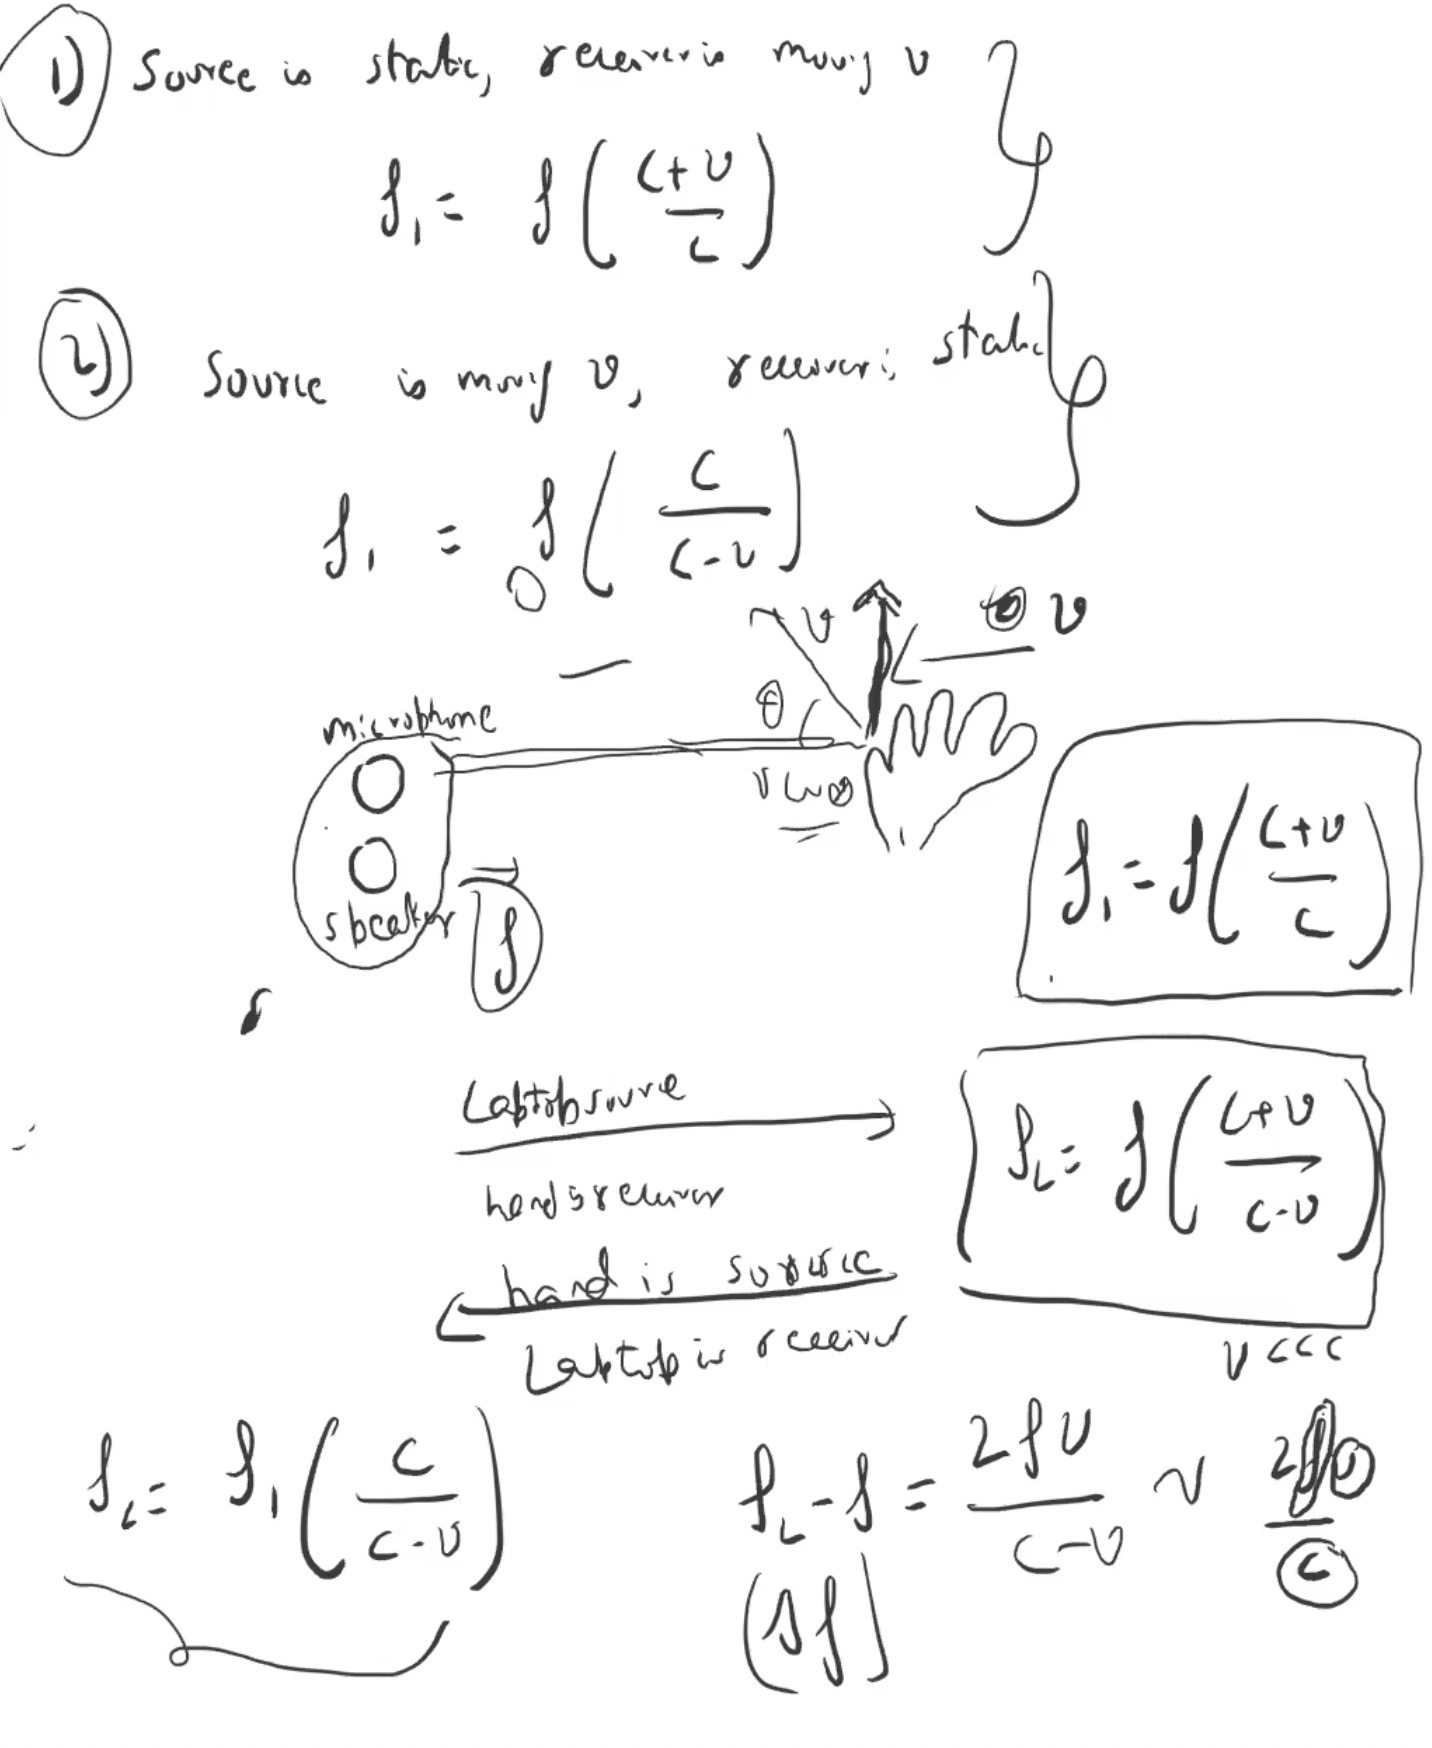 1) Source is static, receiver is moving v
f₁ = f ( (c+v) / c )
2) Source is moving v, receiver is static
f₁ = f₀ ( c / (c-v) )
v
v
θ
microphone
v cosθ
speaker
f
f₁ = f ( (c+v) / c )
Laptop source
hand is receiver
f₂ = f ( (c+v) / (c-v) )
hand is source
Laptop is receiver
v <<< c
f₂ = f₁ ( c / (c-v) )
f₂ - f = 2fv / (c-v) ~ 2fv / c
(Δf)